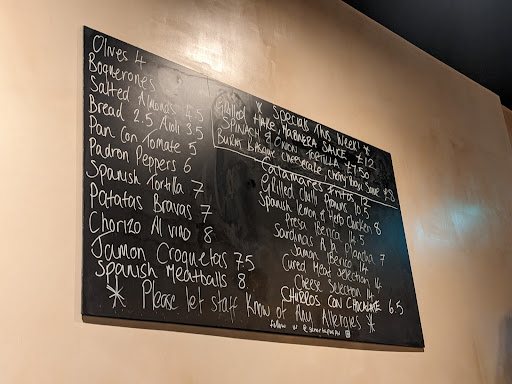 Olives 4
Boquerones
Salted Almonds 3.5
Bread 2.5 Aioli 3.5
Pan Con Tomate 5
Padron Peppers 6
Spanish Tortilla 7
Patatas Bravas 7
Chorizo Al vino 8
Jamon Croquetas 7.5
Spanish Meatballs 8
* Specials This Week! *
Grilled Hake, Habanera Sauce £12
Spinach & Onion Tortilla £7.50
Burnt Basque Cheesecake, Sauce £8
Calamares Fritos 12
Grilled Chilli Prawns 10.5
Spanish Lemon & Herb Chicken 8
Presa Iberico 14.5
Sardinas A la plancha 7
Jamon Iberico 14
Cured Meat Selection 14
Cheese Selection 14
Churros con Chocolate 6.5
* Please let staff Know of Any Allergies *
follow